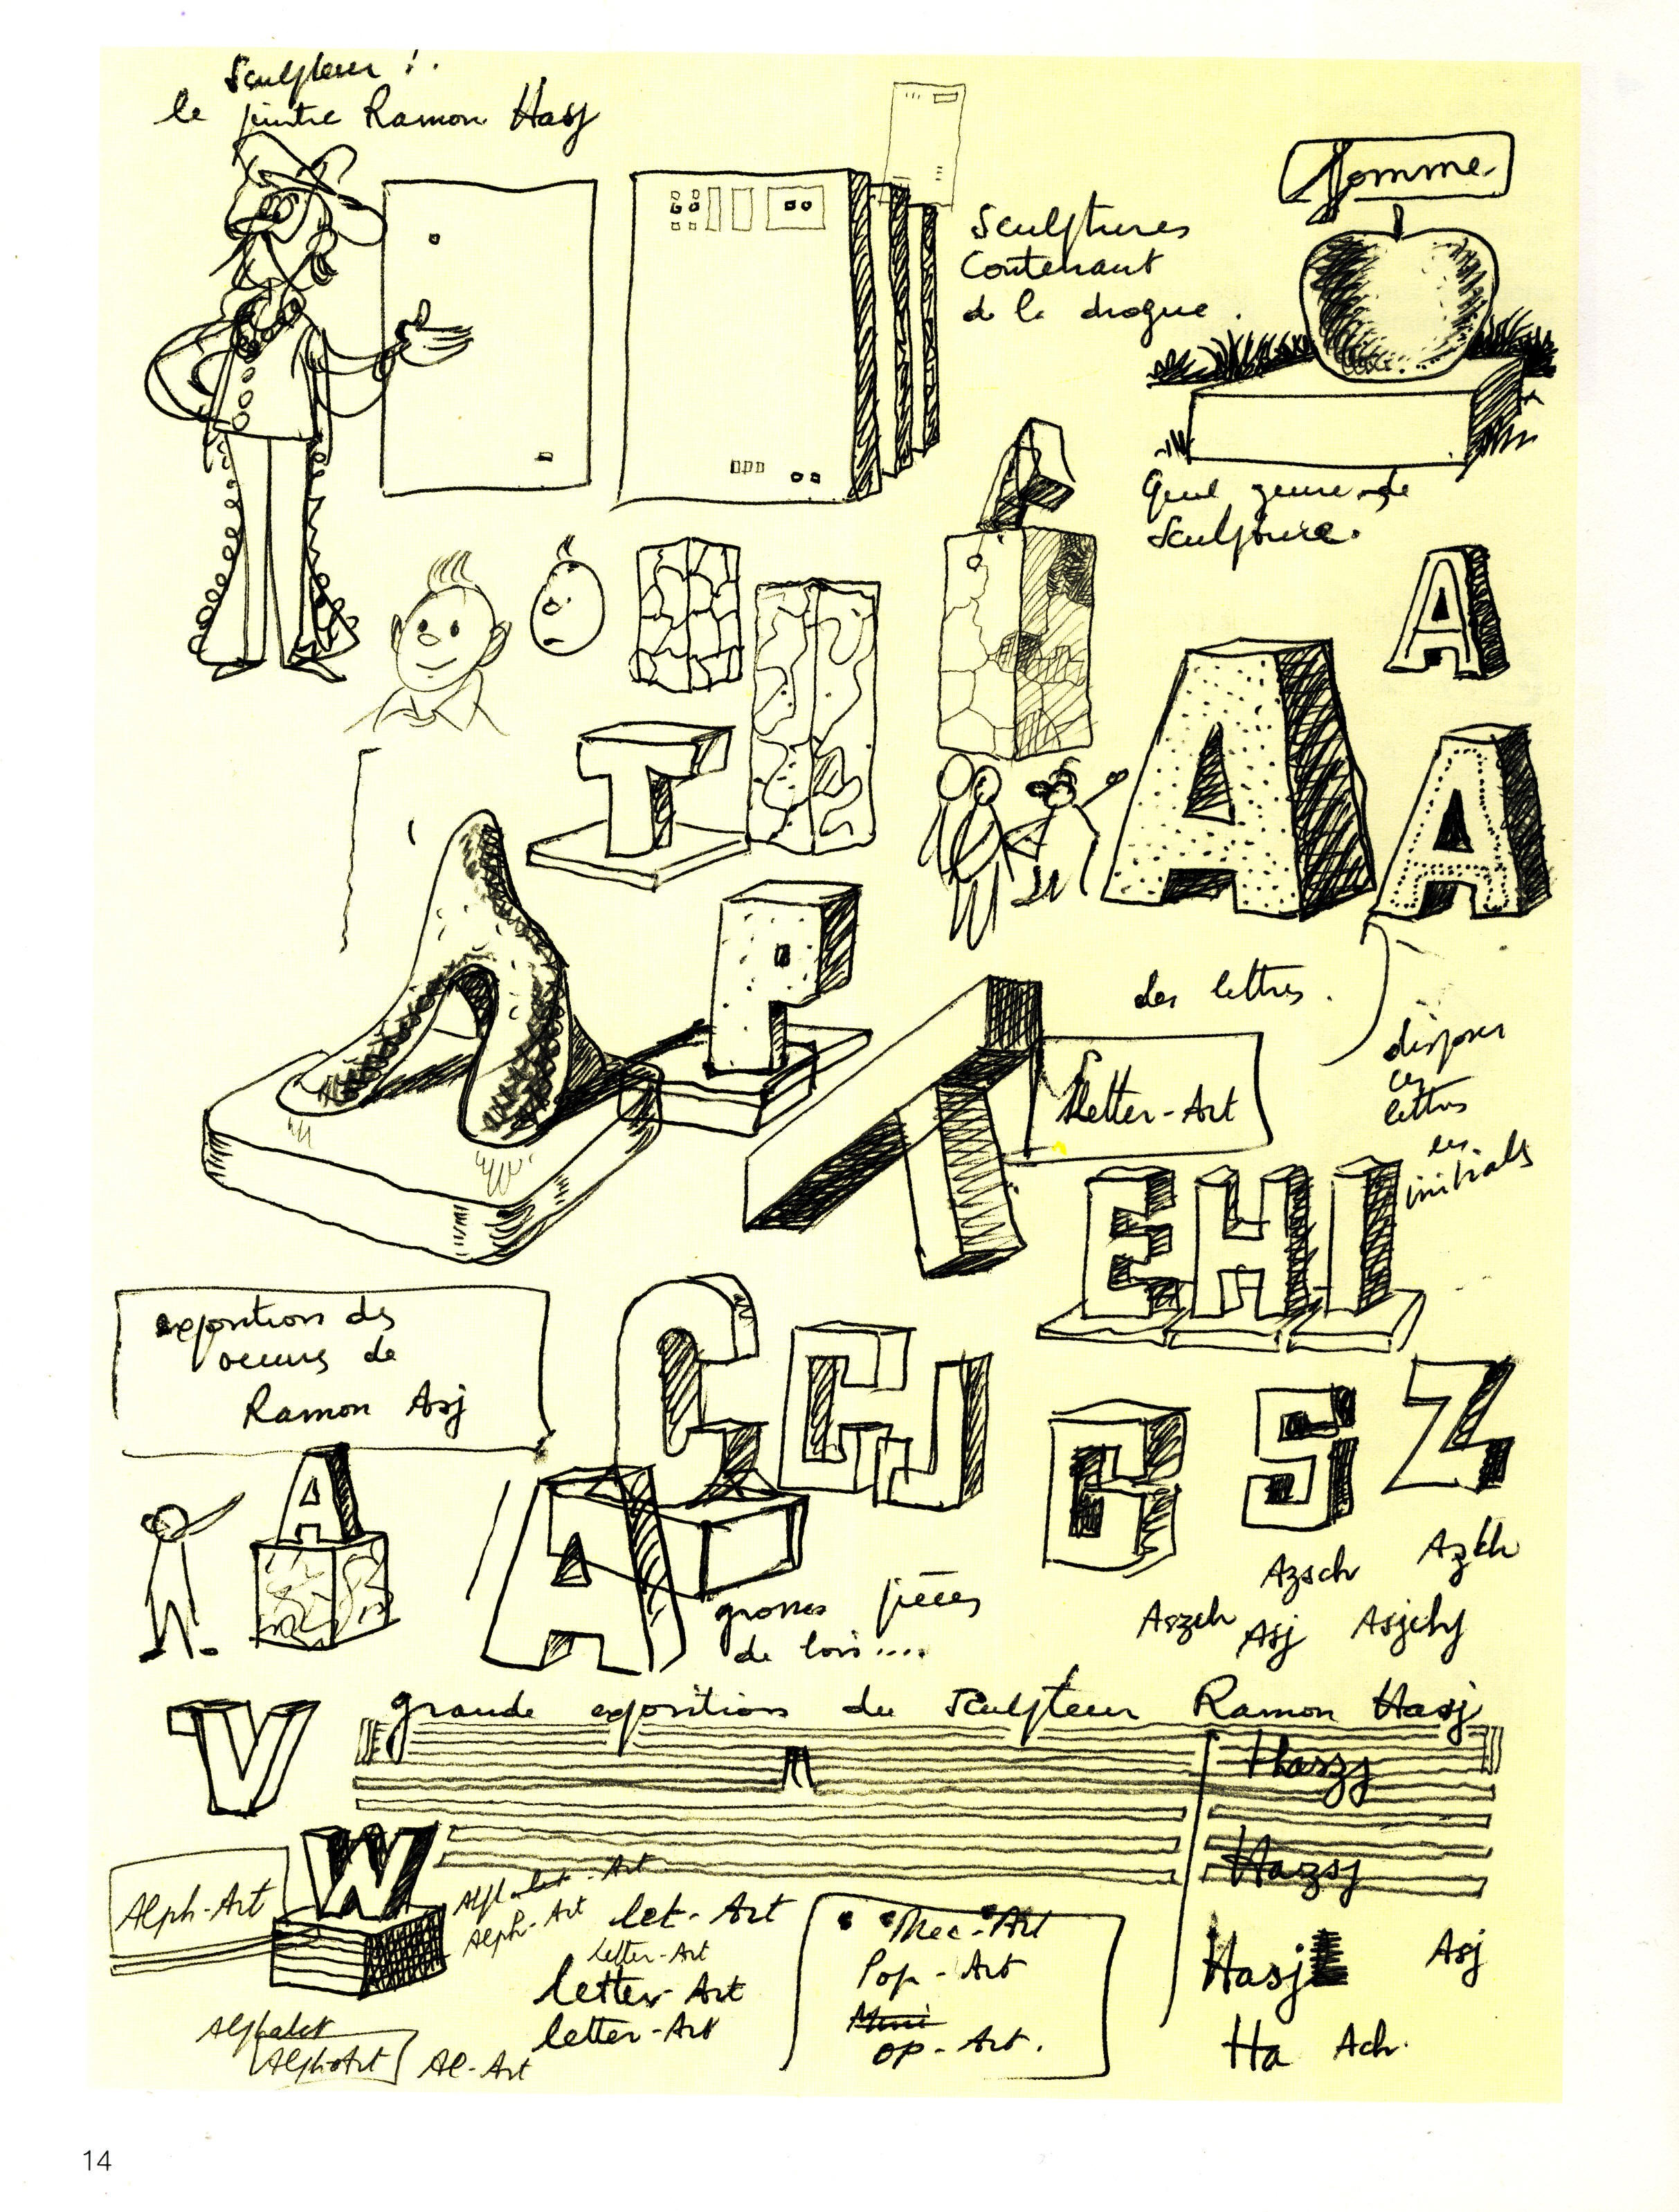 Sculpteur !.
le peintre Ramon Hasj
Pomme
Sculptures
Contenant
de la drogue.
Quel genre de
Sculpture.
A
A
A
A
T
P
des lettres.
disposer
ces
lettres
en
initials
Letter-Art
E H I
exposition des
oeuvres de
Ramon Asj
C
G J
G
S
Z
A
A
Azsch
Azkh
Aszch
Asj
Asjchj
grosses pièces
de bois....
V
grande exposition du Sculpteur Ramon Hasj
Haszj
Hazsj
W
Alph-Art
Alphabet-Art
Alph-Art
let-Art
Letter-Art
letter-Art
letter-Art
Mec-Art
Pop-Art
Mini
op-Art.
Hasj
Asj
Ha
Ach.
Alphabet
AlphArt
Al-Art
14